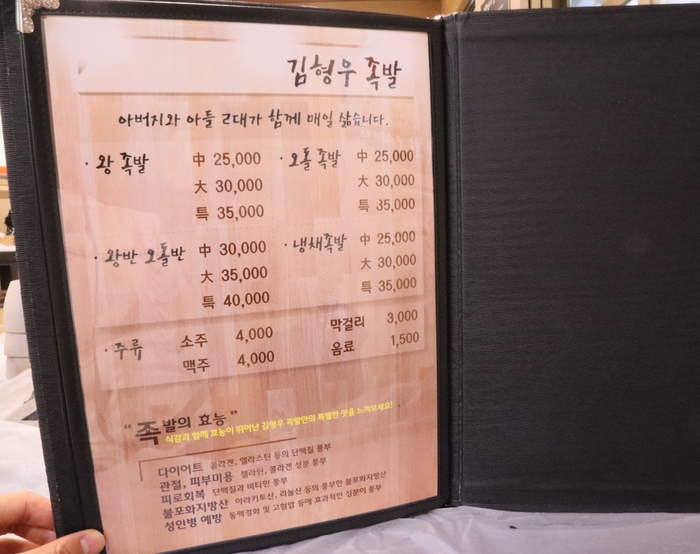 김형우 족발
아버지와 아들 2대가 함께 매일 삶습니다.
· 왕 족발 中 25,000
大 30,000
특 35,000
· 오돌 족발 中 25,000
大 30,000
특 35,000
· 왕반 오돌반 中 30,000
大 35,000
특 40,000
· 냉채족발 中 25,000
大 30,000
특 35,000
· 주류 소주 4,000
맥주 4,000
막걸리 3,000
음료 1,500
"족발의 효능"
식감과 함께 효능이 뛰어난 김형우 족발만의 특별한 맛을 느껴보세요!
다이어트 콜라겐, 엘라스틴 등의 단백질 풍부
관절, 피부미용 젤라틴, 콜라겐 성분 풍부
피로회복 단백질과 비타민 풍부
불포화지방산 아라키토산, 리놀산 등의 풍부한 불포화지방산
성인병 예방 동맥경화 및 고혈압 등에 효과적인 성분이 풍부